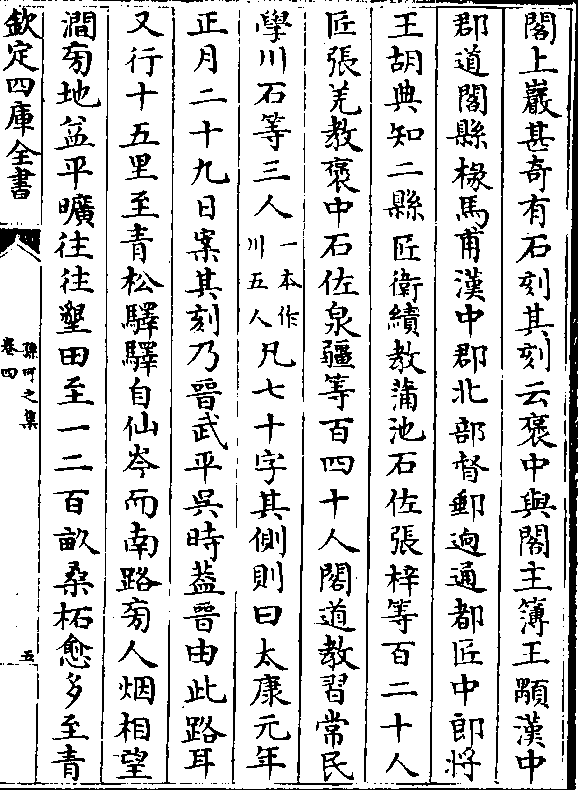 閣上巖甚奇有石刻其刻云褒中與閣主簿王顒漢中
郡道閣縣椽馬甫漢中郡北部督郵迥通都匠中郎將
王胡典知二縣匠衛績教蒲池石佐張梓等百二十人
匠張羌教褒中石佐泉疆等百四十人閣道教習常民
學川石等三人一本作川五人凡七十字其側則曰太康元年
正月二十九日案其刻乃晉武平吳時葢晉由此路耳
又行十五里至青松驛驛自仙岑而南路旁人烟相望
澗旁地益平曠往往墾田至一二百畝桑柘愈多至青
欽定四庫全書
孫可之集
卷四
五